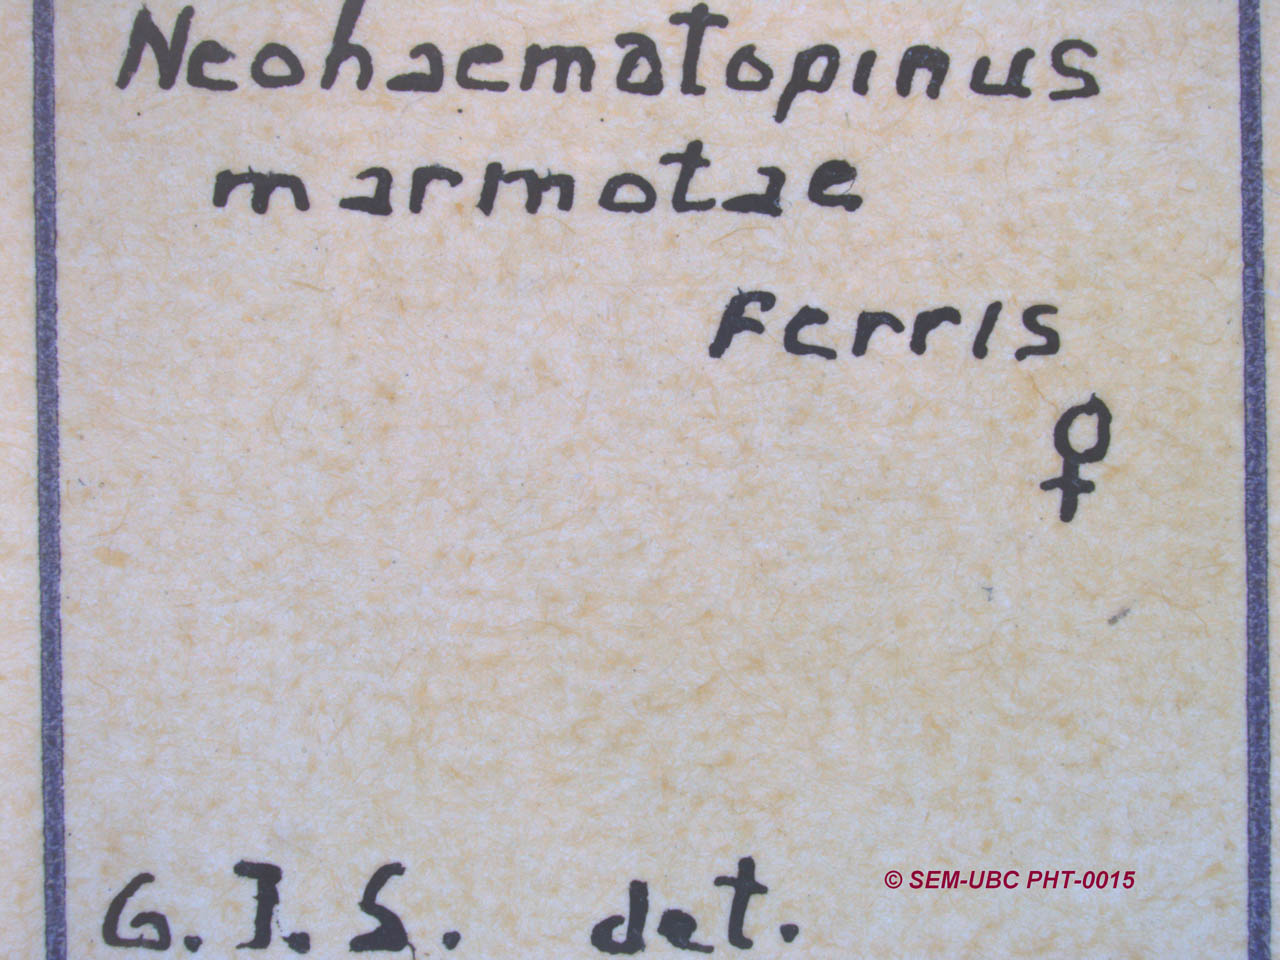 Neohaematopinus
marmotae
Ferris
♀
G.J.S. det.
© SEM-UBC PHT-0015